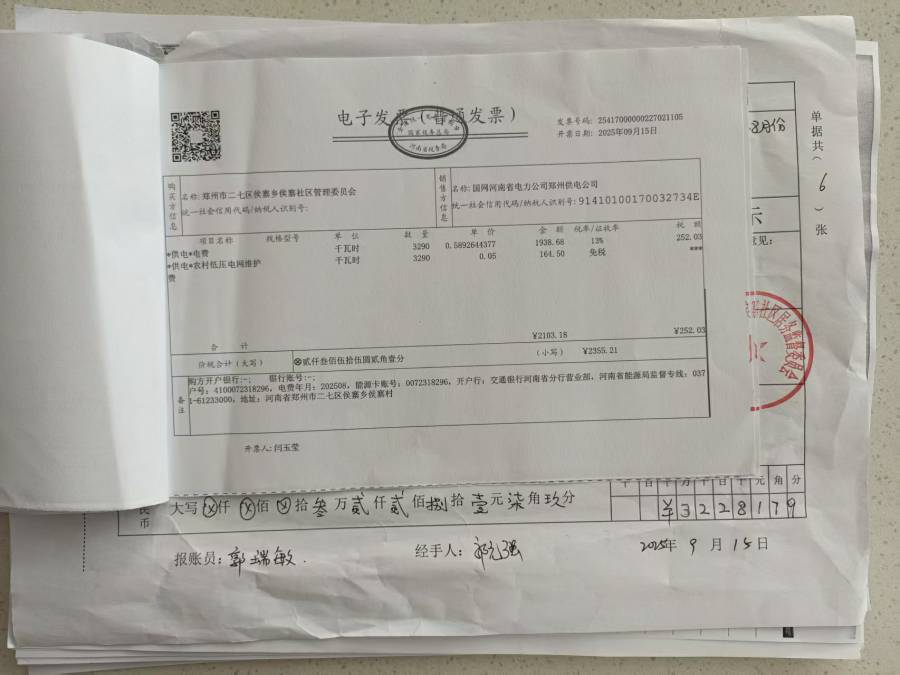 电子发票（普通发票）
国家税务总局
河南省税务局
发票号码: 25417000000227021105
开票日期: 2025年09月15日
购买方信息
名称: 郑州市二七区侯寨乡侯寨社区管理委员会
统一社会信用代码/纳税人识别号:
销售方信息
名称: 国网河南省电力公司郑州供电公司
统一社会信用代码/纳税人识别号: 91410100170032734E
项目名称 规格型号 单 位 数 量 单 价 金 额 税率/征收率 税 额
*供电*电费 千瓦时 3290 0.5892644377 1938.68 13% 252.03
*供电*农村低压电网维护 千瓦时 3290 0.05 164.50 免税 ***
费
合 计 ¥2103.18 ¥252.03
价税合计（大写） ⊗贰仟叁佰伍拾伍圆贰角壹分 （小写） ¥2355.21
备注
购方开户银行:-; 银行账号:-;
户号: 4100072318296, 电费年月: 202508, 能源卡账号: 0072318296, 开户行: 交通银行河南省分行营业部, 河南省能源局监督专线: 037
1-61233000, 地址: 河南省郑州市二七区侯寨乡侯寨村
开票人: 闫玉莹
8月份
单据共（6）张
意见:
民币
大写 ⊗仟 ⊗佰 ⊗拾 叁万 贰仟 贰佰 捌拾 壹元 柒角 玖分
千 百 十 万 千 百 十 元 角 分
¥ 3 2 2 8 1 7 9
报账员: 郭瑞敏
经手人:
2025年 9 月 15 日